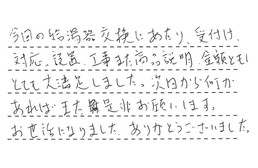 今回の給湯器交換にあたり、受付け、
対応、設置、工事また商品説明、金額ともに
とても大満足しました。次回から何か
あれば、また是非お願いします。
お世話になりました。ありがとうございました。